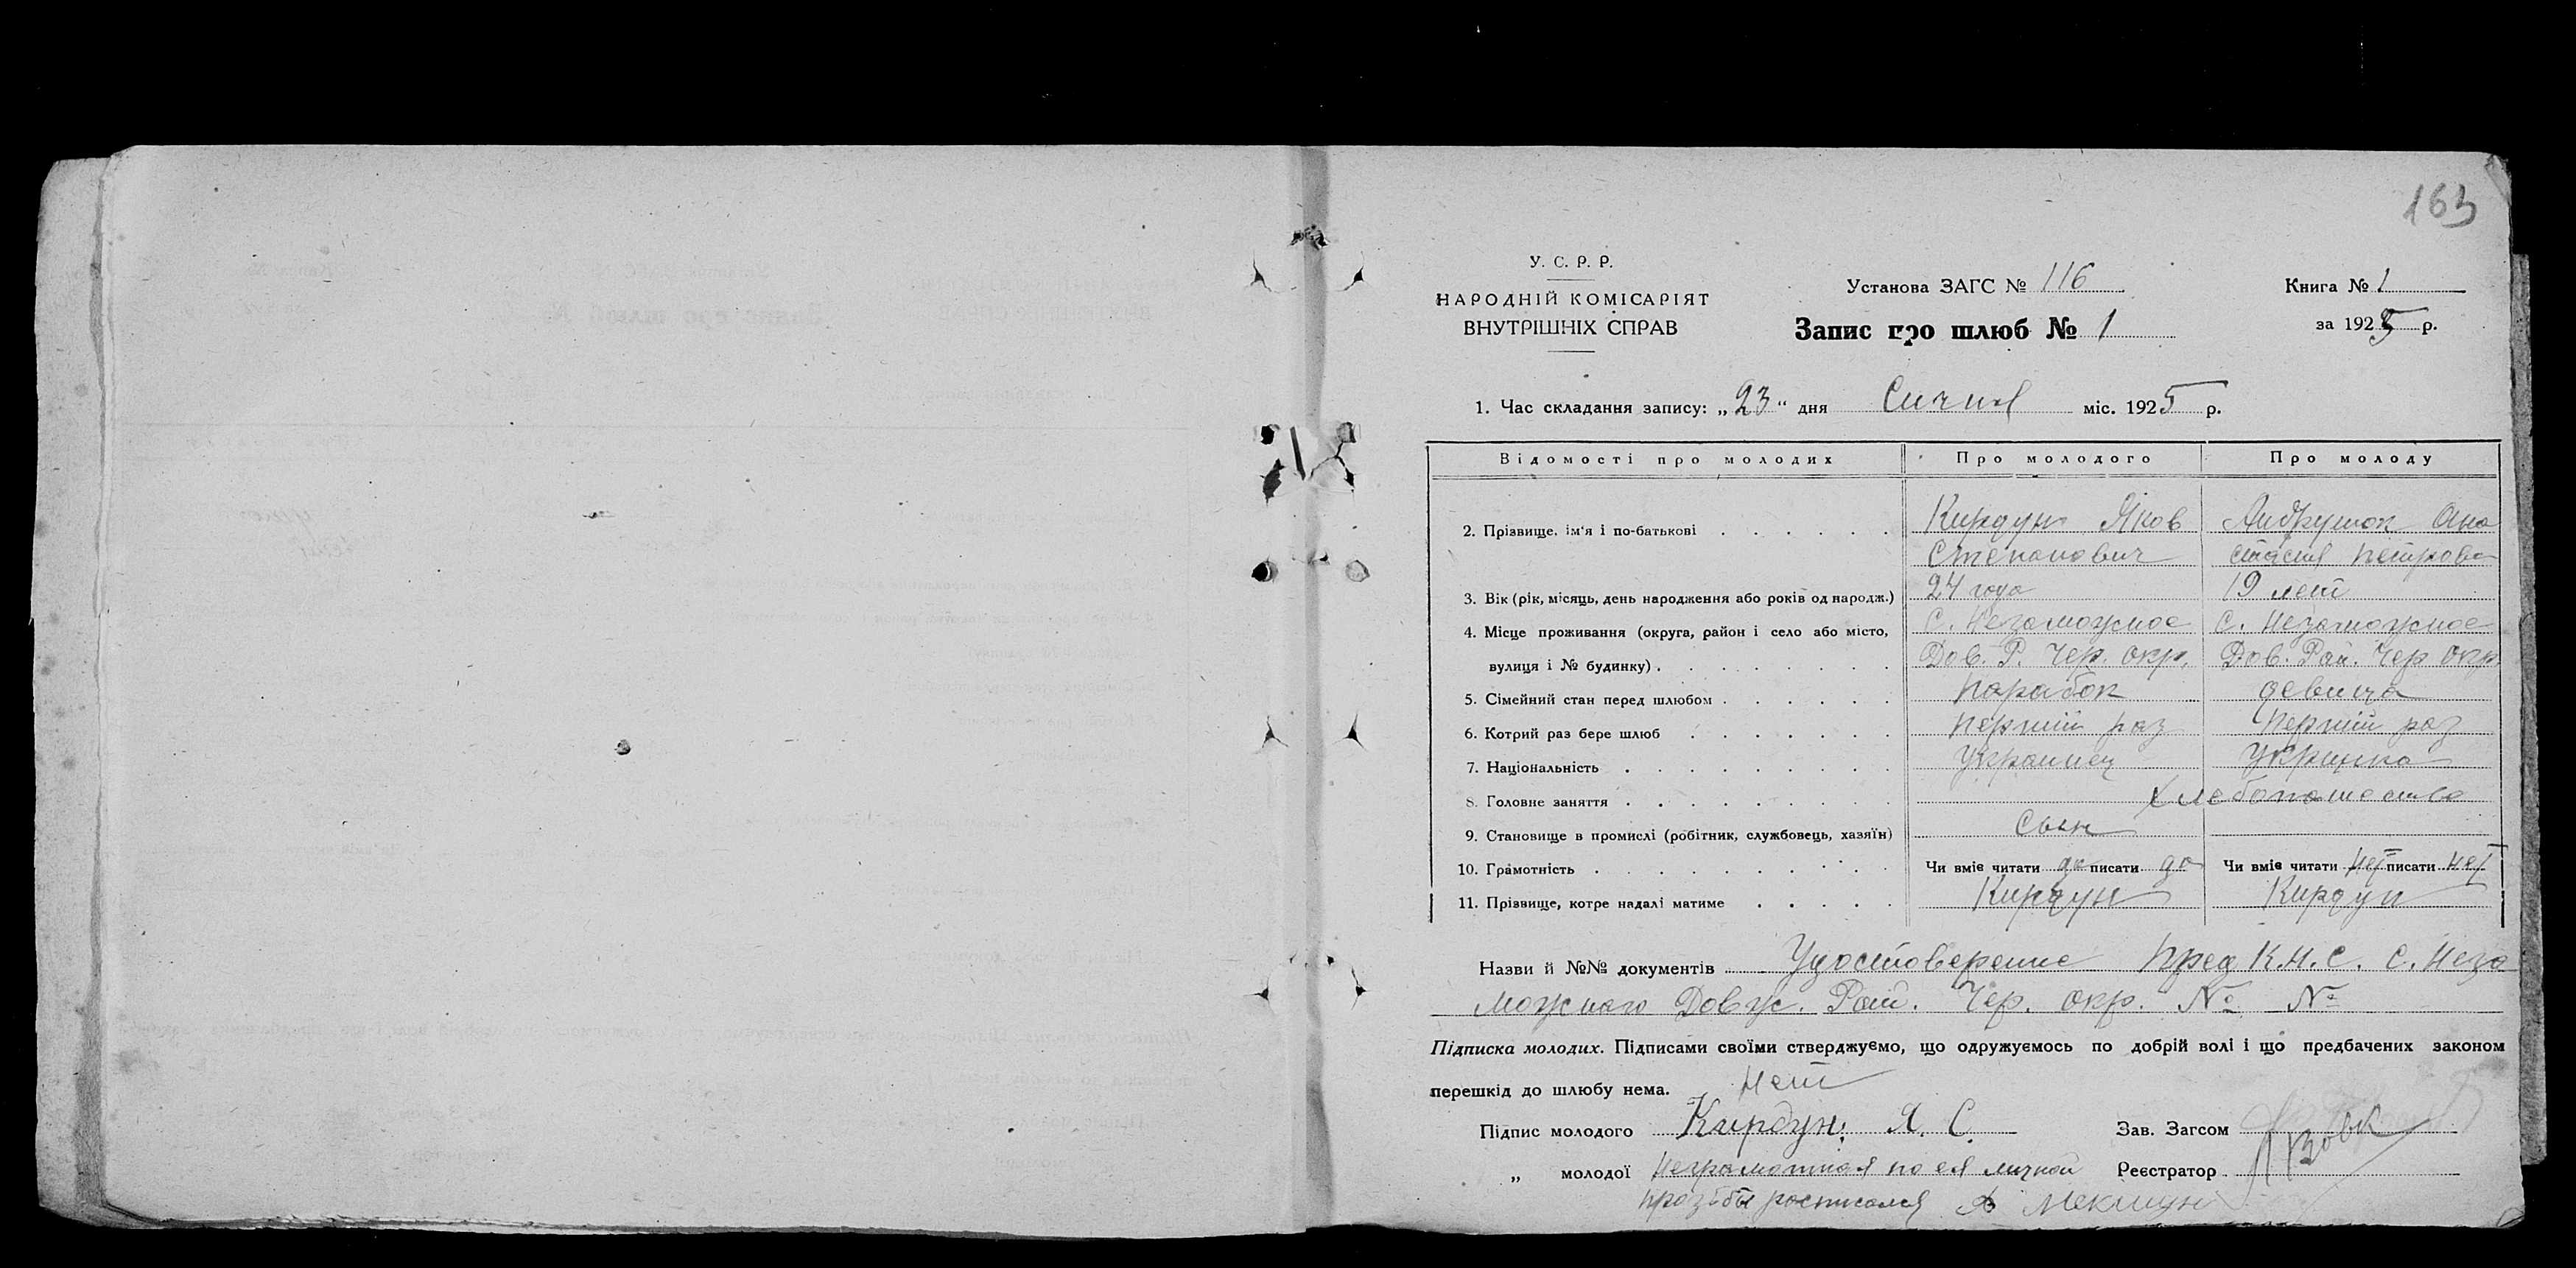 163
У. С. Р. Р.
НАРОДНІЙ КОМІСАРІЯТ
ВНУТРІШНІХ СПРАВ
Установа ЗАГС № 116
Запис про шлюб № 1
Книга № 1
за 1925 р.
1. Час складання запису: „23“ дня Сичня міс. 1925 р.
Відомості про молодих Про молодого Про молоду
2. Прізвище, ім'я і по-батькові Кирдун Яков Андрушок Ана
Степанович стасия Петрова
3. Вік (рік, місяць, день народження або років од народж.) 24 года 19 лет
4. Місце проживання (округа, район і село або місто, С. Незаможное С. Незаможное
вулиця і № будинку) Дов. Р. Чер. окр. Дов. Рай. Чер окр.
5. Сімейний стан перед шлюбом парабок девица
6. Котрий раз бере шлюб перший раз перший раз
7. Національність Украинец Укринка
8. Головне заняття хлебопашество
9. Становище в промислі (робітник, службовець, хазяїн) сын
10. Грамотність Чи вміє читати да писати да Чи вміє читати нет писати нет
11. Прізвище, котре надалі матиме Кирдун Кирдун
Назви й №№ документів Удостоверение пред К.Н.С. с. Неза
можнаго Довж. Рай. Чер. окр. № №
Підписка молодих. Підписами своїми стверджуємо, що одружуємось по добрій волі і що предбачених законом
перешкід до шлюбу нема. Нет
Підпис молодого Кирдун. Я. С. Зав. Загсом
„ молодої Неграмотная по ея личной Реєстратор Вовк
прозьбы росписался